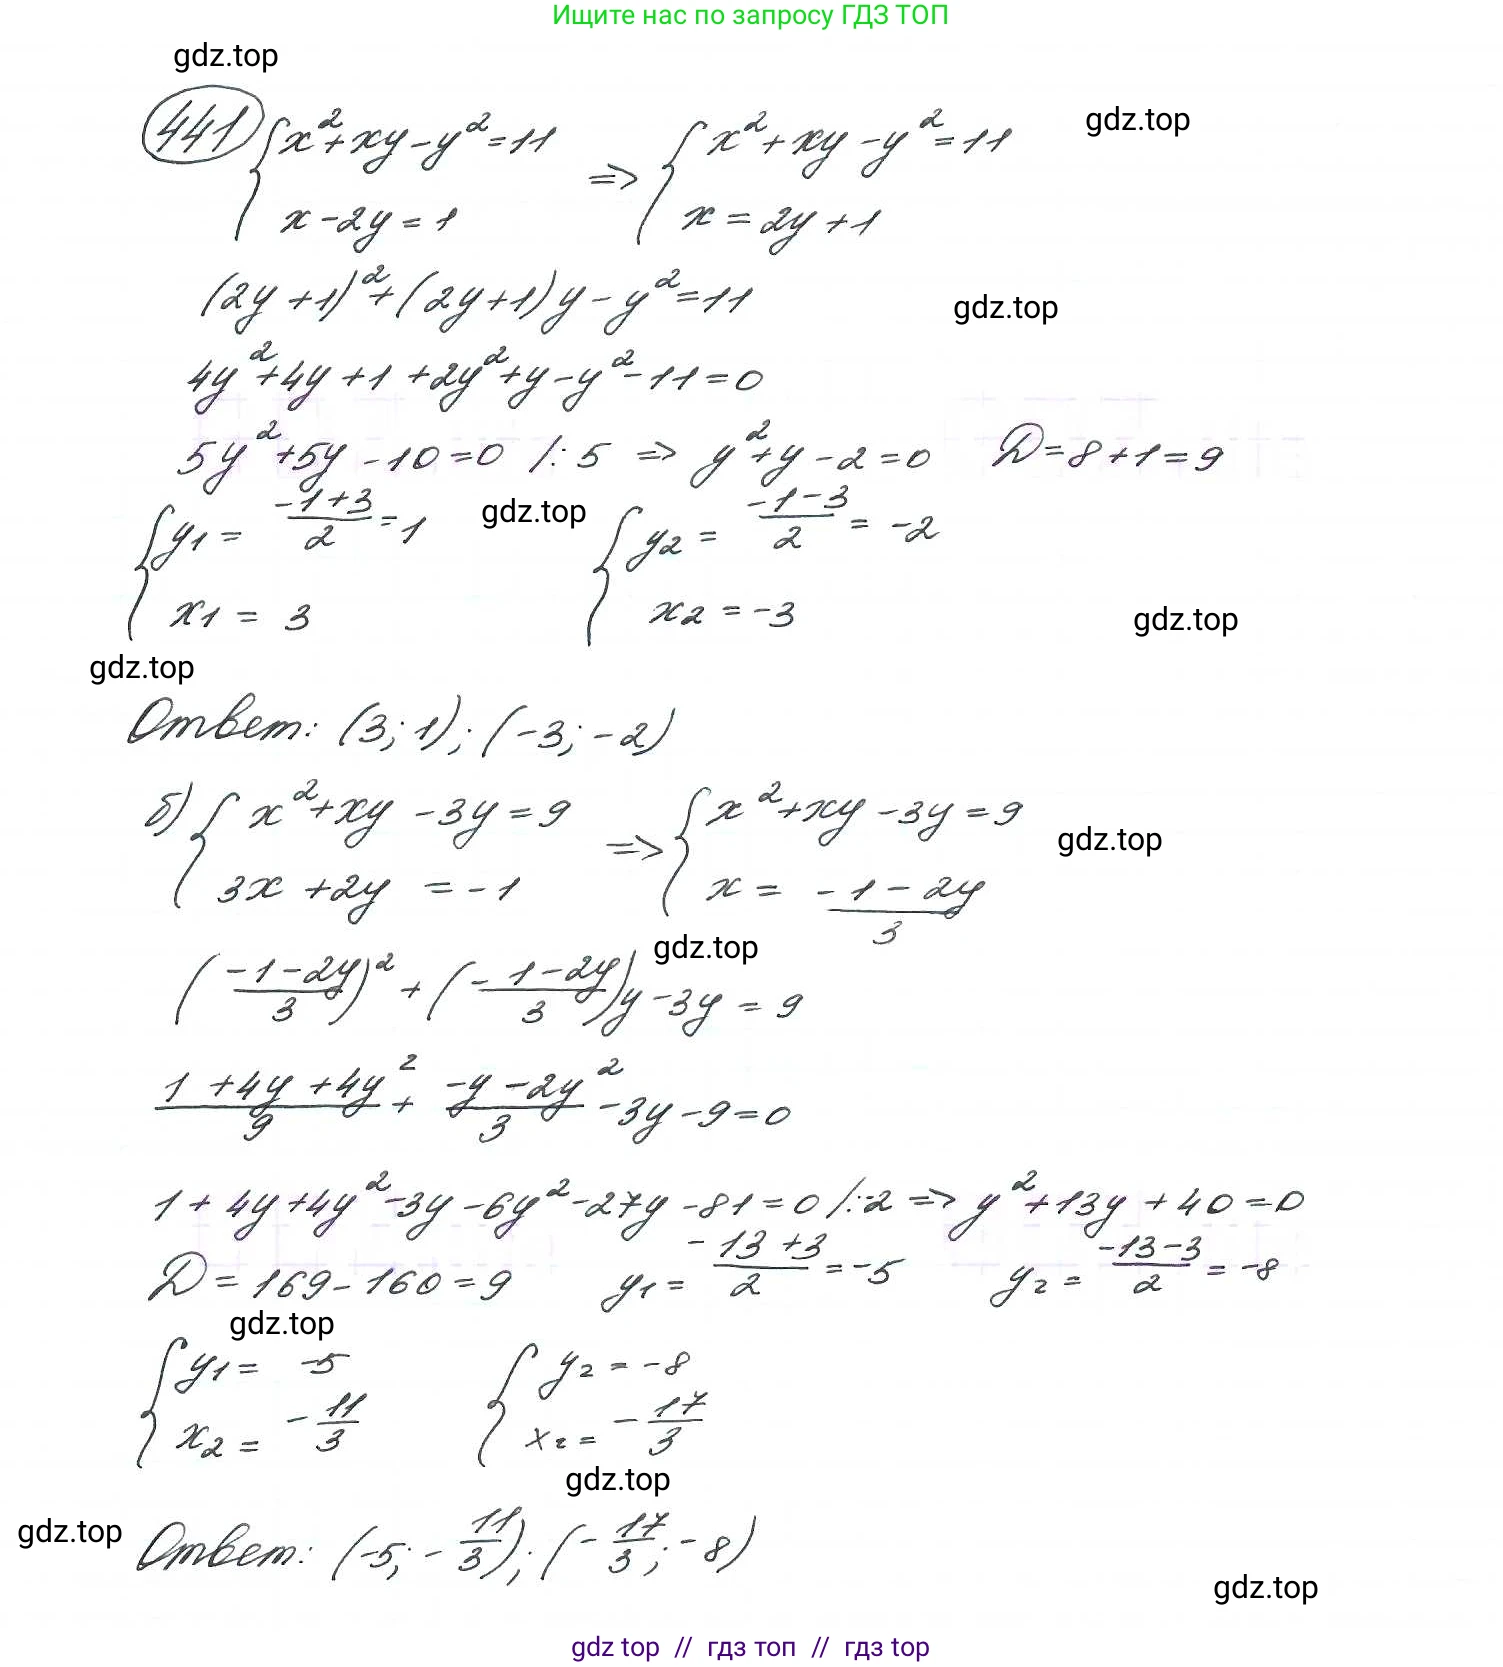 Ищите нас по запросу ГДЗ ТОП
gdz.top
441 { x²+xy-y²=11 => { x²+xy-y²=11
gdz.top
x-2y=1 x=2y+1
(2y+1)²+(2y+1)y-y²=11
gdz.top
4y²+4y+1+2y²+y-y²-11=0
5y²+5y-10=0 /:5 => y²+y-2=0 D=8+1=9
{ y1=(-1+3)/2=1 gdz.top { y2=(-1-3)/2=-2
x1=3 x2=-3
gdz.top
gdz.top
Ответ: (3;1); (-3;-2)
б) { x²+xy-3y=9 => { x²+xy-3y=9
gdz.top
3x+2y=-1 x=(-1-2y)/3
gdz.top
((-1-2y)/3)²+((-1-2y)/3)y-3y=9
(1+4y+4y²)/9+(-y-2y²)/3-3y-9=0
1+4y+4y²-3y-6y²-27y-81=0 /:-2 => y²+13y+40=0
D=169-160=9 y1=(-13+3)/2=-5 y2=(-13-3)/2=-8
gdz.top
{ y1=-5 { y2=-8
x2=-11/3 x2=-17/3
gdz.top
gdz.top
Ответ: (-5;-11/3); (-17/3;-8)
gdz.top
gdz top // гдз топ // гдз top